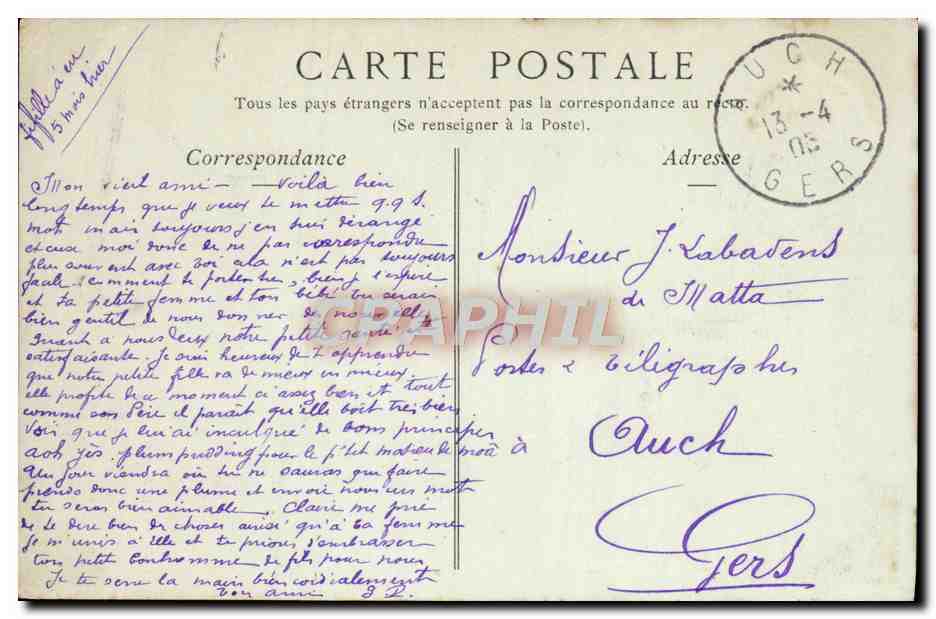 fifille a eu
5 mois hier
CARTE POSTALE
Tous les pays étrangers n'acceptent pas la correspondance au recto.
(Se renseigner à la Poste).
Correspondance
Mon vieil ami — Voilà bien
longtemps que je veux te mettre q.q.s.
mots mais toujours j'en suis dérangé
excuse moi donc de ne pas correspondre
plus souvent avec toi cela n'est pas toujours
facile. Comment te portes-tu, bien j'espère
et ta petite femme et ton bébé tu serais
bien gentil de nous donner de nouvelles
Quant à nous deux notre petite santé est
satisfaisante. Je suis heureux de t'apprendre
que notre petite fille va de mieux en mieux.
elle profite de ce moment ci assez bien et tout
comme son Père il paraît qu'elle boit très bien
Vois que je lui ai inculqué de bons principes
aoh yès, plumpudding pour le p'tit
Un jour viendra où tu ne sauras que faire
prends donc une plume et envoie nous un mot
tu seras bien aimable. Claire me prie
de te dire bien de choses ainsi qu'à ta femme
Je m'unis à Elle et te prions d'embrasser
ton petit bonhomme de fils pour nous
Je te serre la main bien cordialement
ton ami J P.
Adresse
Monsieur J. Labadens
de Matta
Postes & Télégraphes
à Auch
Gers
AUCH
*
13 -4
05
GERS
CPAPHIL